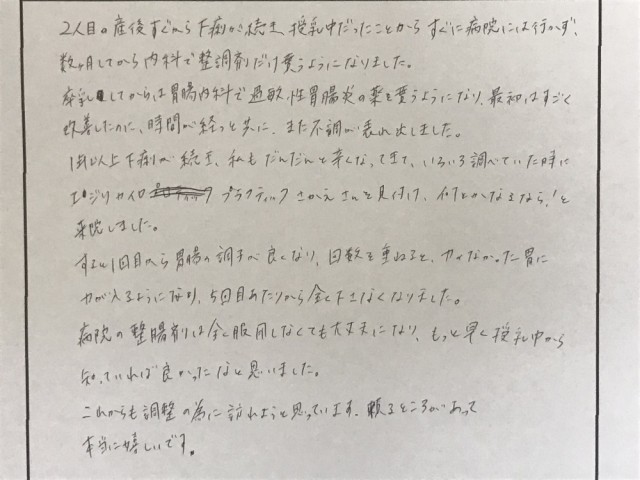 2人目の産後すぐから下痢が続き、授乳中だったことからすぐに病院には行かず、
数ヶ月してから内科で整調剤だけ貰うようになりました。
卒乳してからは胃腸内科で過敏性胃腸炎の薬を貰うようになり、最初はすごく
改善したのに、時間が経つと共に、また不調が表れ出しました。
1年以上下痢が続き、私もだんだんと辛くなってきて、いろいろ調べていた時に
エンジリカイロ プラクティックさかえさんを見付け、何とかなるなら!と
来院しました。
すると1回目から胃腸の調子が良くなり、回数を重ねると、力がなかった胃に
力が入るようになり、5回目あたりから全く下さなくなりました。
病院の整腸剤は全く服用しなくても大丈夫になり、もっと早く授乳中から
知っていれば良かったなと思いました。
これからも調整の為に訪れようと思っています。頼るところがあって
本当に嬉しいです。